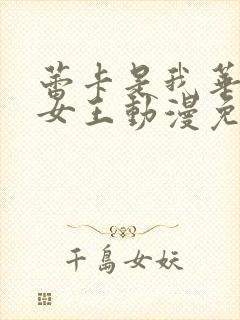 蕾卡是我華
女王動漫免
千島女妖